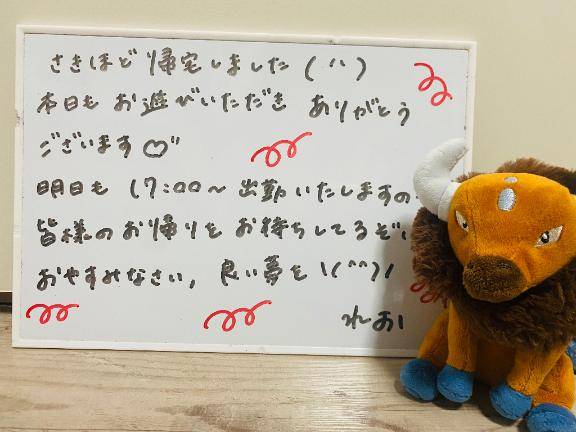 さきほど帰宅しました(^^)
本日も お遊びいただき ありがとう
ございます♡"
明日も 17:00〜 出勤いたしますの
皆様のお帰りを お待ちしてるぞ
おやすみなさい, 良い夢を \(^^)/
れお